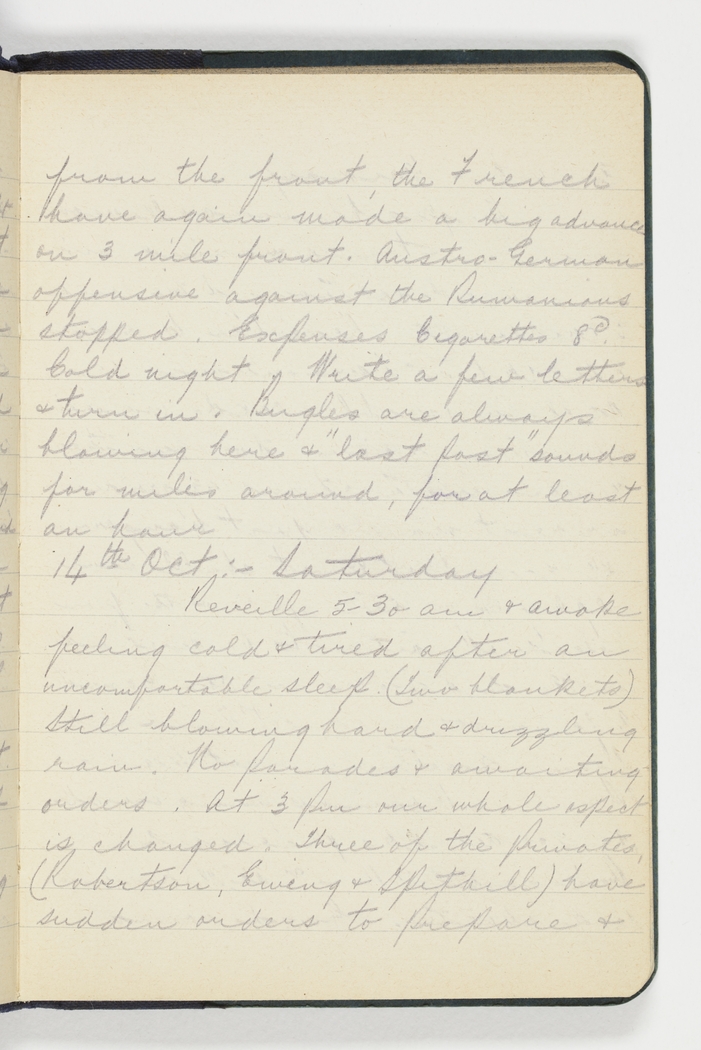 from the front, the French
have again made a big advance
on 3 mile front. Austro-German
offensive against the Rumanians
stopped. Expenses Cigarettes 8d.
Cold night Write a few letters
& turn in. Bugles are always
blowing here & "last post" sounds
for miles around, for at least
an hour
14th Oct:- Saturday
Reveille 5-30 am & awoke
feeling cold & tired after an
uncomfortable sleep. (Two blankets)
Still blowing hard & drizzling
rain. No parades & awaiting
orders. At 3 pm our whole aspect
is changed. Three of the privates,
(Robertson, Ewing & Spithill) have
sudden orders to prepare &